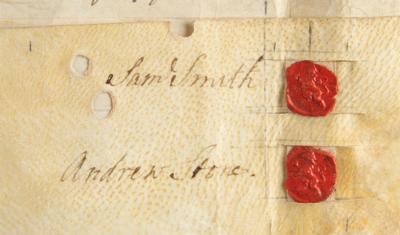 Sam.l Smith
Andrew Stone.